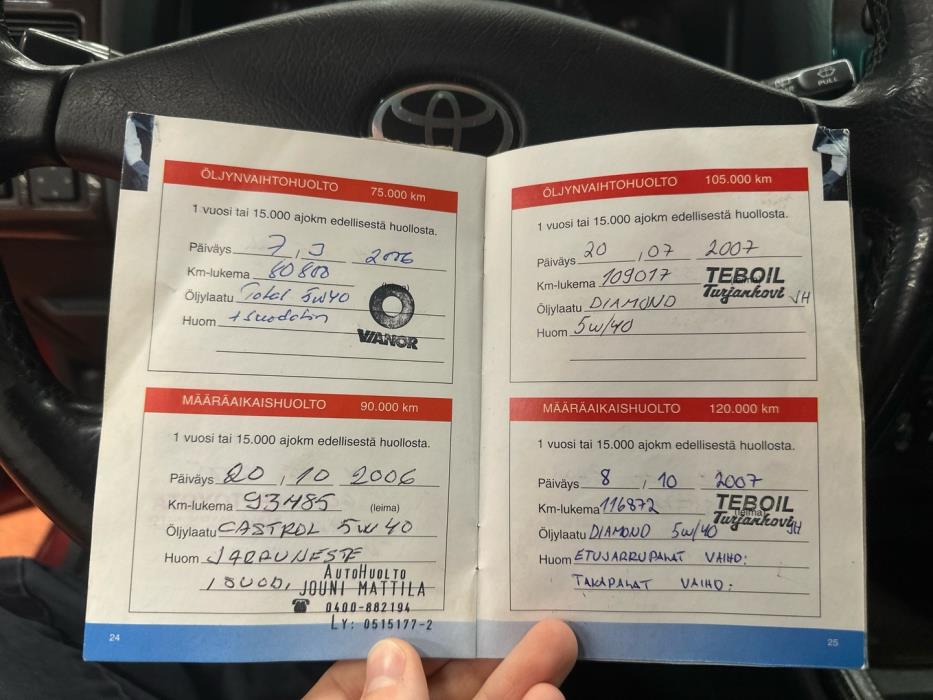 PULL
ÖLJYNVAIHTOHUOLTO 75.000 km
1 vuosi tai 15.000 ajokm edellisestä huollosta.
Päiväys 7,3 2006
Km-lukema 80800
Öljylaatu Total 5W40
Huom + suodatin
VIANOR
MÄÄRÄAIKAISHUOLTO 90.000 km
1 vuosi tai 15.000 ajokm edellisestä huollosta.
Päiväys 20,10 2006
Km-lukema 93485 (leima)
Öljylaatu CASTROL 5W40
Huom JARRUNESTE
1 SUOD,
AUTOHUOLTO
JOUNI MATTILA
☎ 0400-882194
LY: 0515177-2
24
ÖLJYNVAIHTOHUOLTO 105.000 km
1 vuosi tai 15.000 ajokm edellisestä huollosta.
Päiväys 20,07 2007
Km-lukema 109017
TEBOIL
Turjankovi JH
Öljylaatu DIAMOND
Huom 5W/40
MÄÄRÄAIKAISHUOLTO 120.000 km
1 vuosi tai 15.000 ajokm edellisestä huollosta.
Päiväys 8,10 2007
Km-lukema 116872 (leima)
TEBOIL
Turjankovi JH
Öljylaatu DIAMOND 5W/40
Huom ETUJARRUPALAT VAIHD:
TAKAPALAT VAIHD:
25